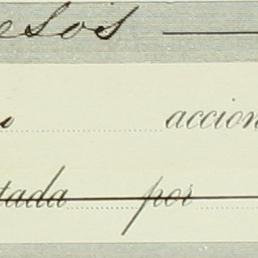 esos
accion
tada por